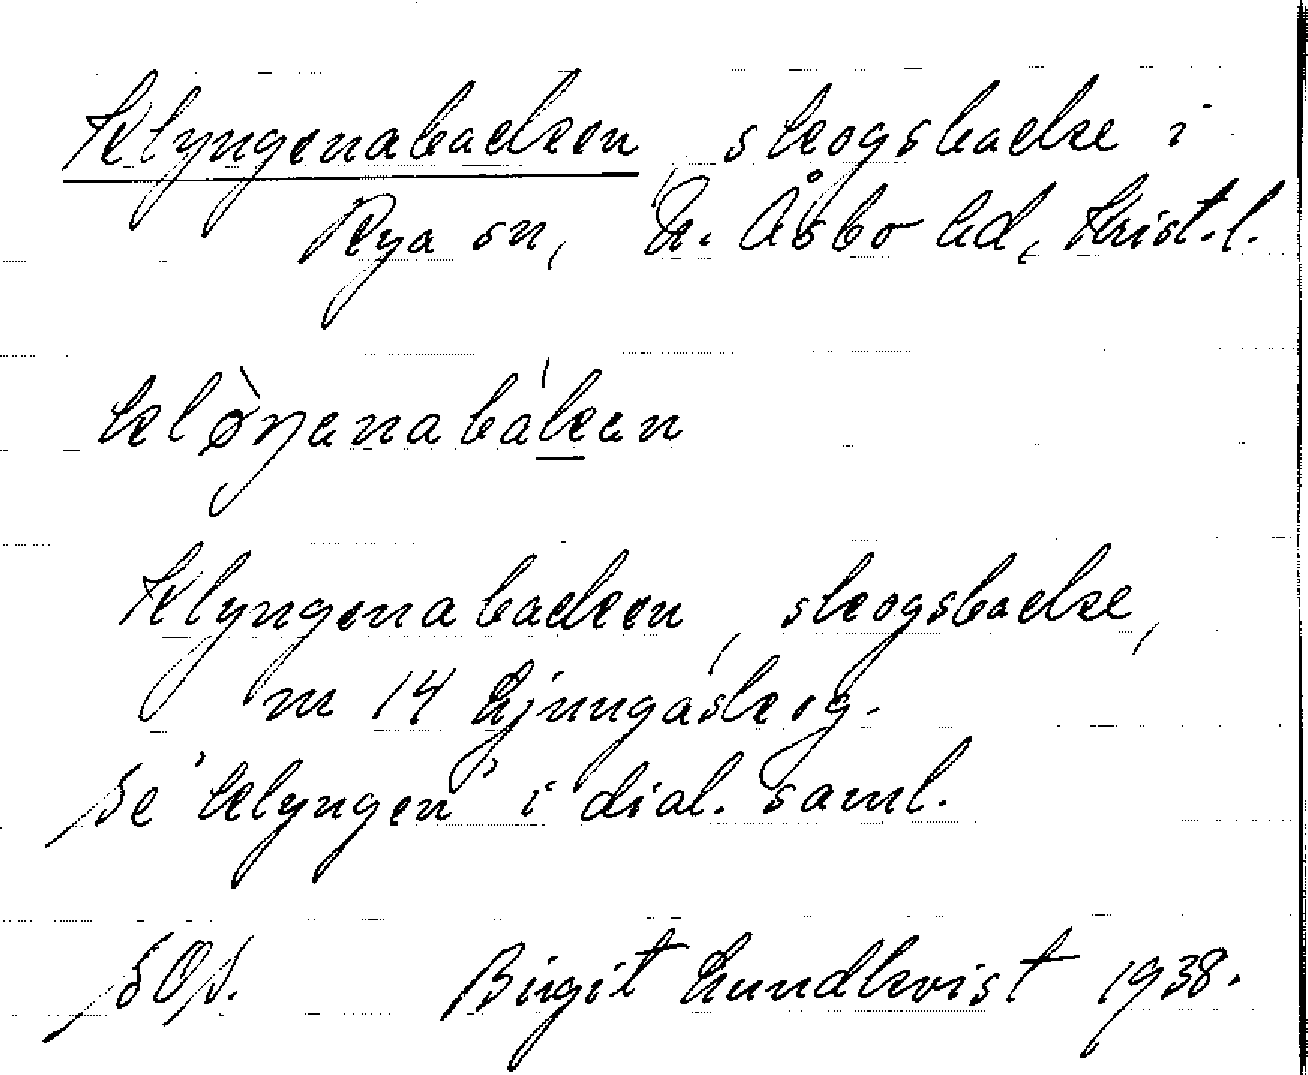 Klyngenabacken, skogsbacke i
Rya sn, N. Åsbo hd, Krist. l.
kløŋanabákan
Klyngenabacken, skogsbacke,
m 14 Ljungaskog.
Se "klyngen" i dial. saml.
SOS. Birgit Lundkvist 1938.